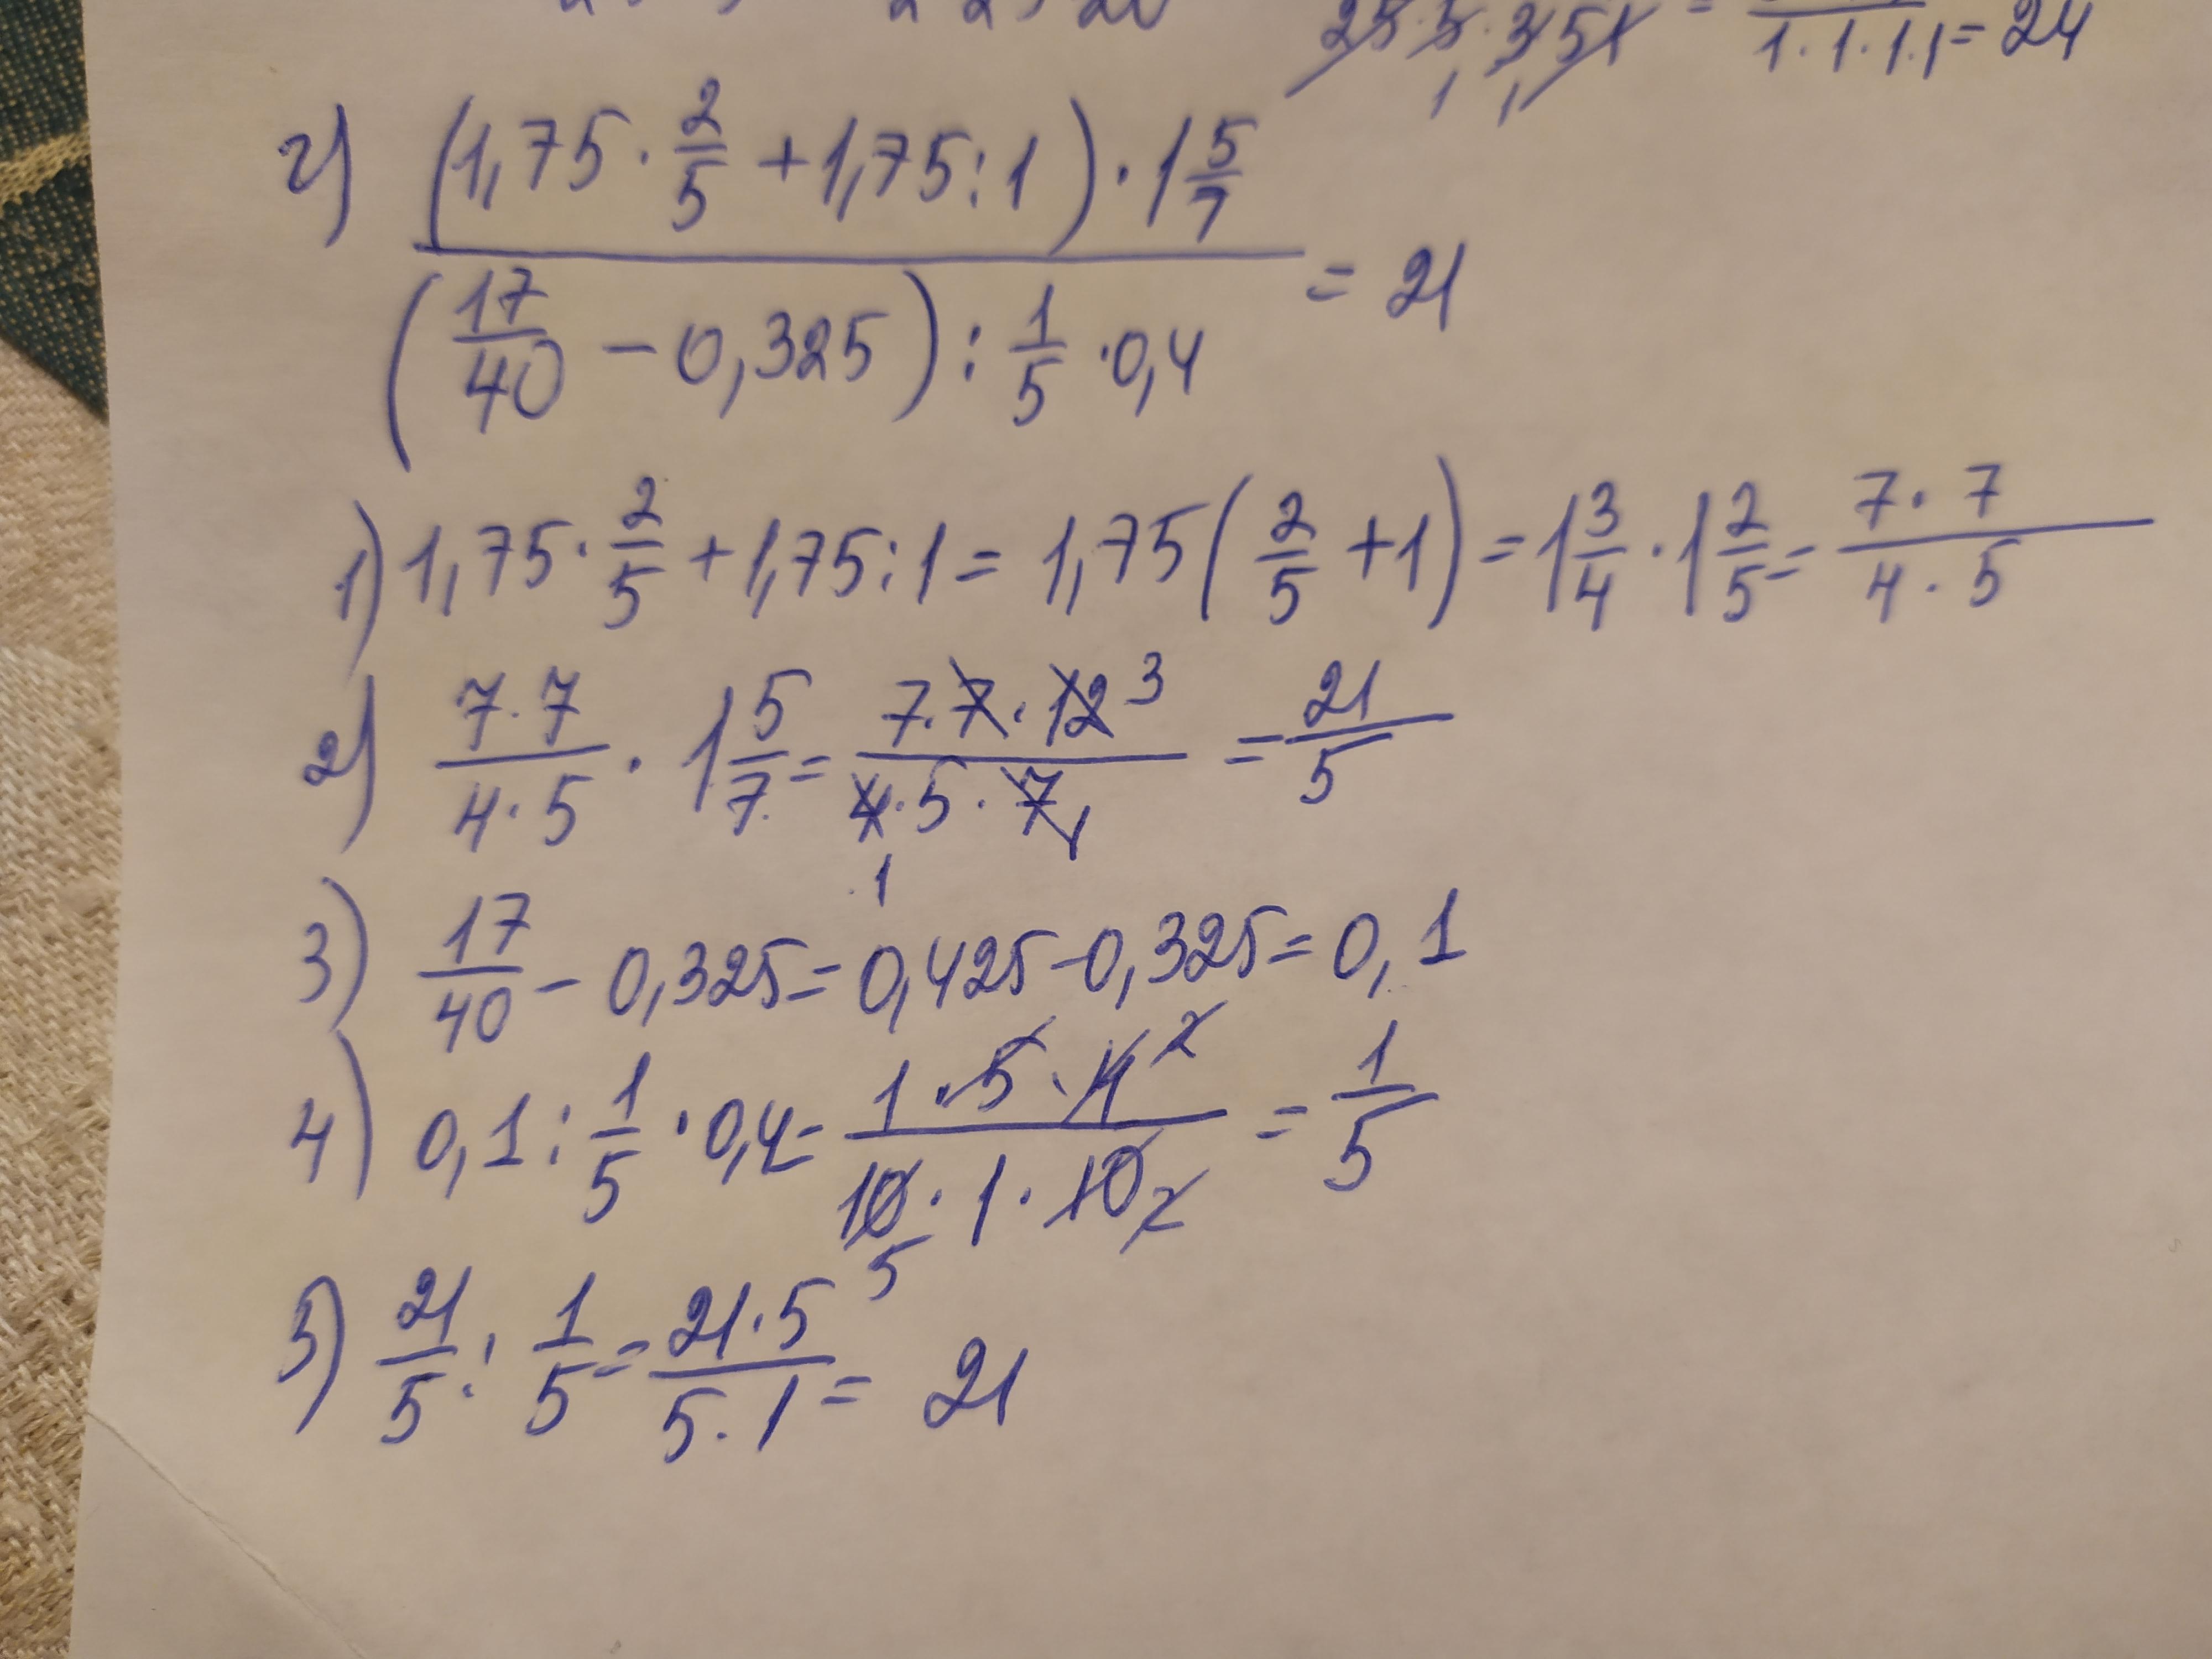 25·5·3 51 = 1·1·1·1 = 24
г) (1,75 · 2/5 + 1,75 : 1) · 1 5/7
(17/40 - 0,325) : 1/5 · 0,4 = 21
1) 1,75 · 2/5 + 1,75 : 1 = 1,75 (2/5 + 1) = 1 3/4 · 1 2/5 = 7 · 7 / 4 · 5
2) 7·7 / 4·5 · 1 5/7 = 7·7·12 3 / 4·5·7 1 1 = 21/5
3) 17/40 - 0,325 = 0,425 - 0,325 = 0,1
4) 0,1 : 1/5 · 0,4 = 1·5·4 2 / 10·1·10 2 5 = 1/5
5) 21/5 : 1/5 = 21·5 / 5·1 = 21